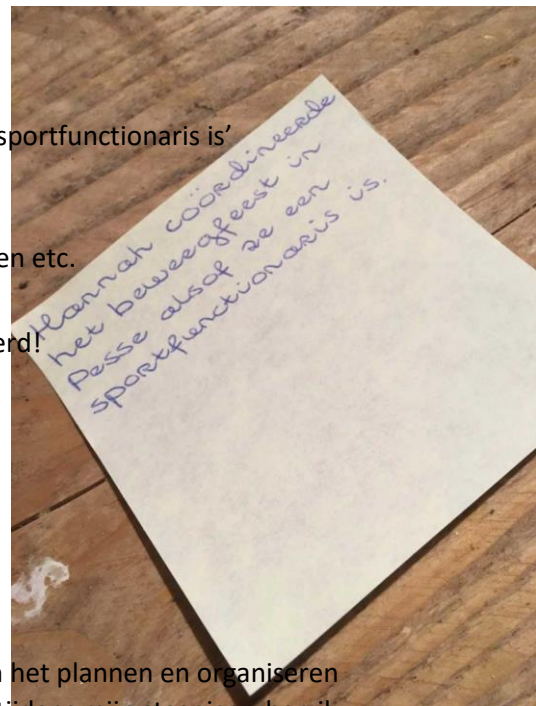 sportfunctionaris is’
en etc.
erd!
Hannah coördineerde
het beweegfeest in
Pesse alsof ze een
sportfunctionaris is.
het plannen en organiseren